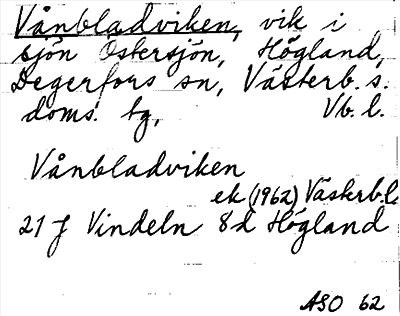 Vånbladviken, vik i
sjön Östersjön, Högland,
Degerfors sn, Västerb. s.
doms. tg, Vb. l.
Vånbladviken
ek (1962) Västerb.l
21 J Vindeln 8d Högland
ASO 62